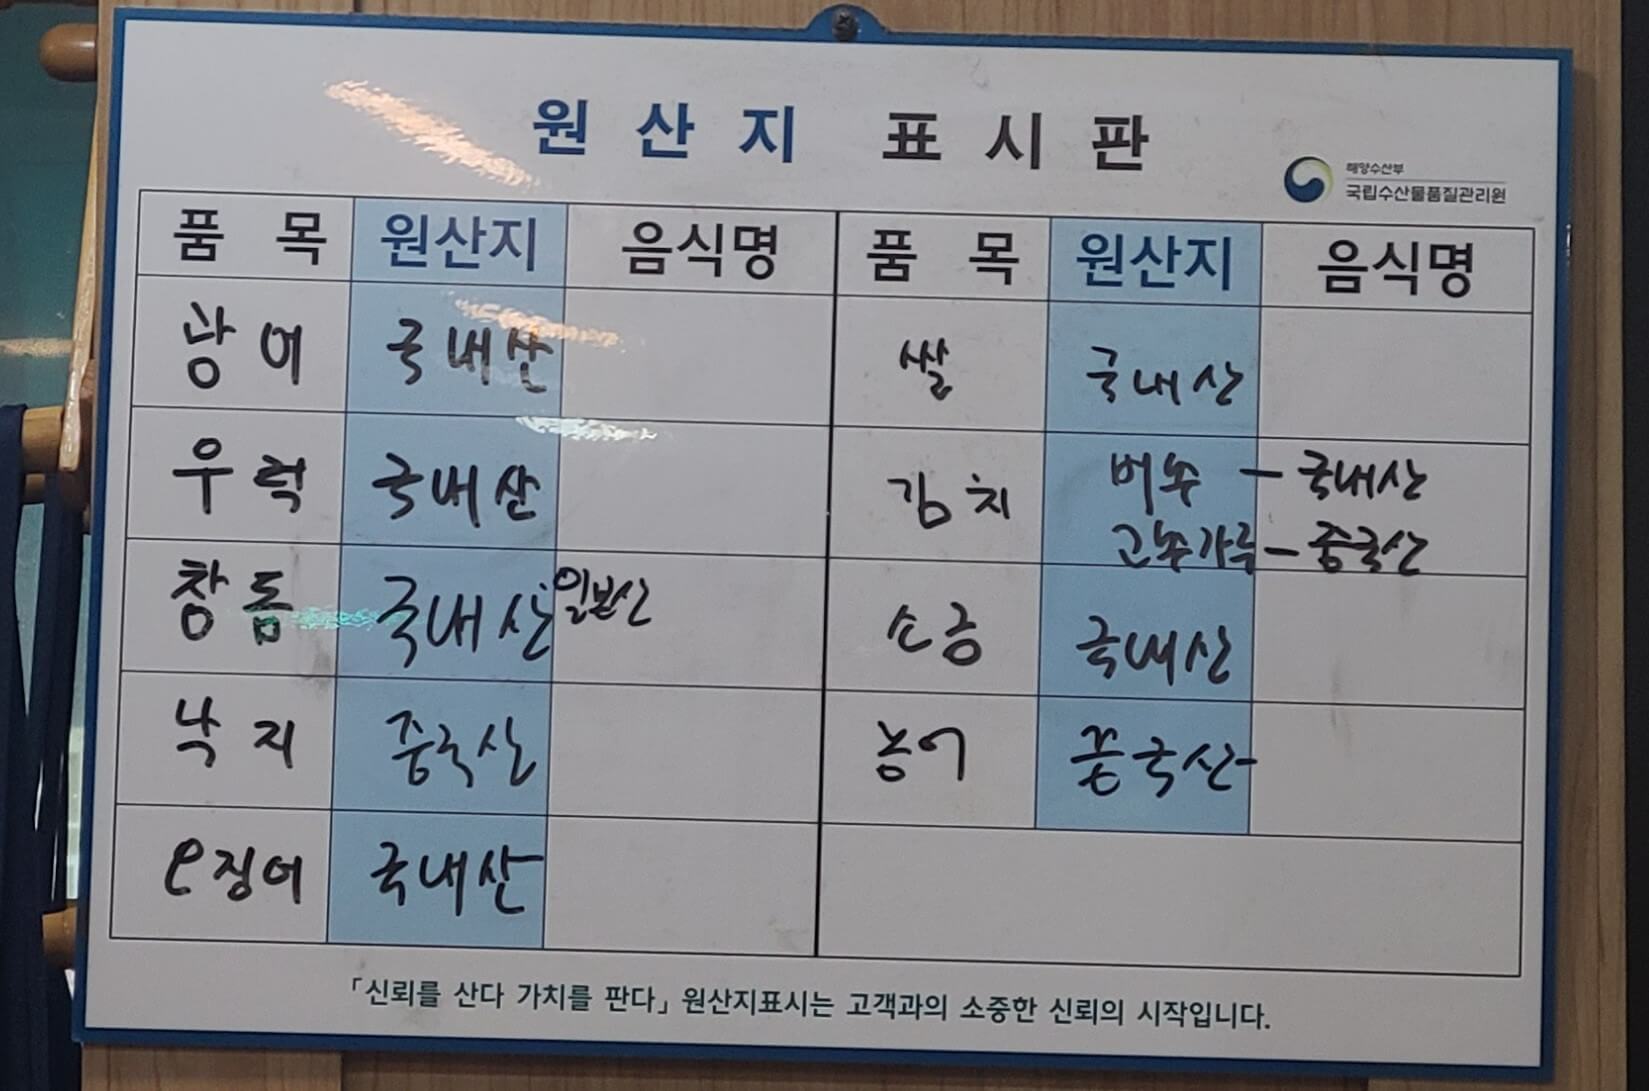 원산지 표시판
해양수산부
국립수산물품질관리원
품목 원산지 음식명 품목 원산지 음식명
광어 국내산 쌀 국내산
우럭 국내산 김치 배추 - 국내산
고추가루 - 중국산
참돔 국내산 일본산 소금 국내산
낙지 중국산 농어 중국산
오징어 국내산
「신뢰를 산다 가치를 판다」 원산지표시는 고객과의 소중한 신뢰의 시작입니다.